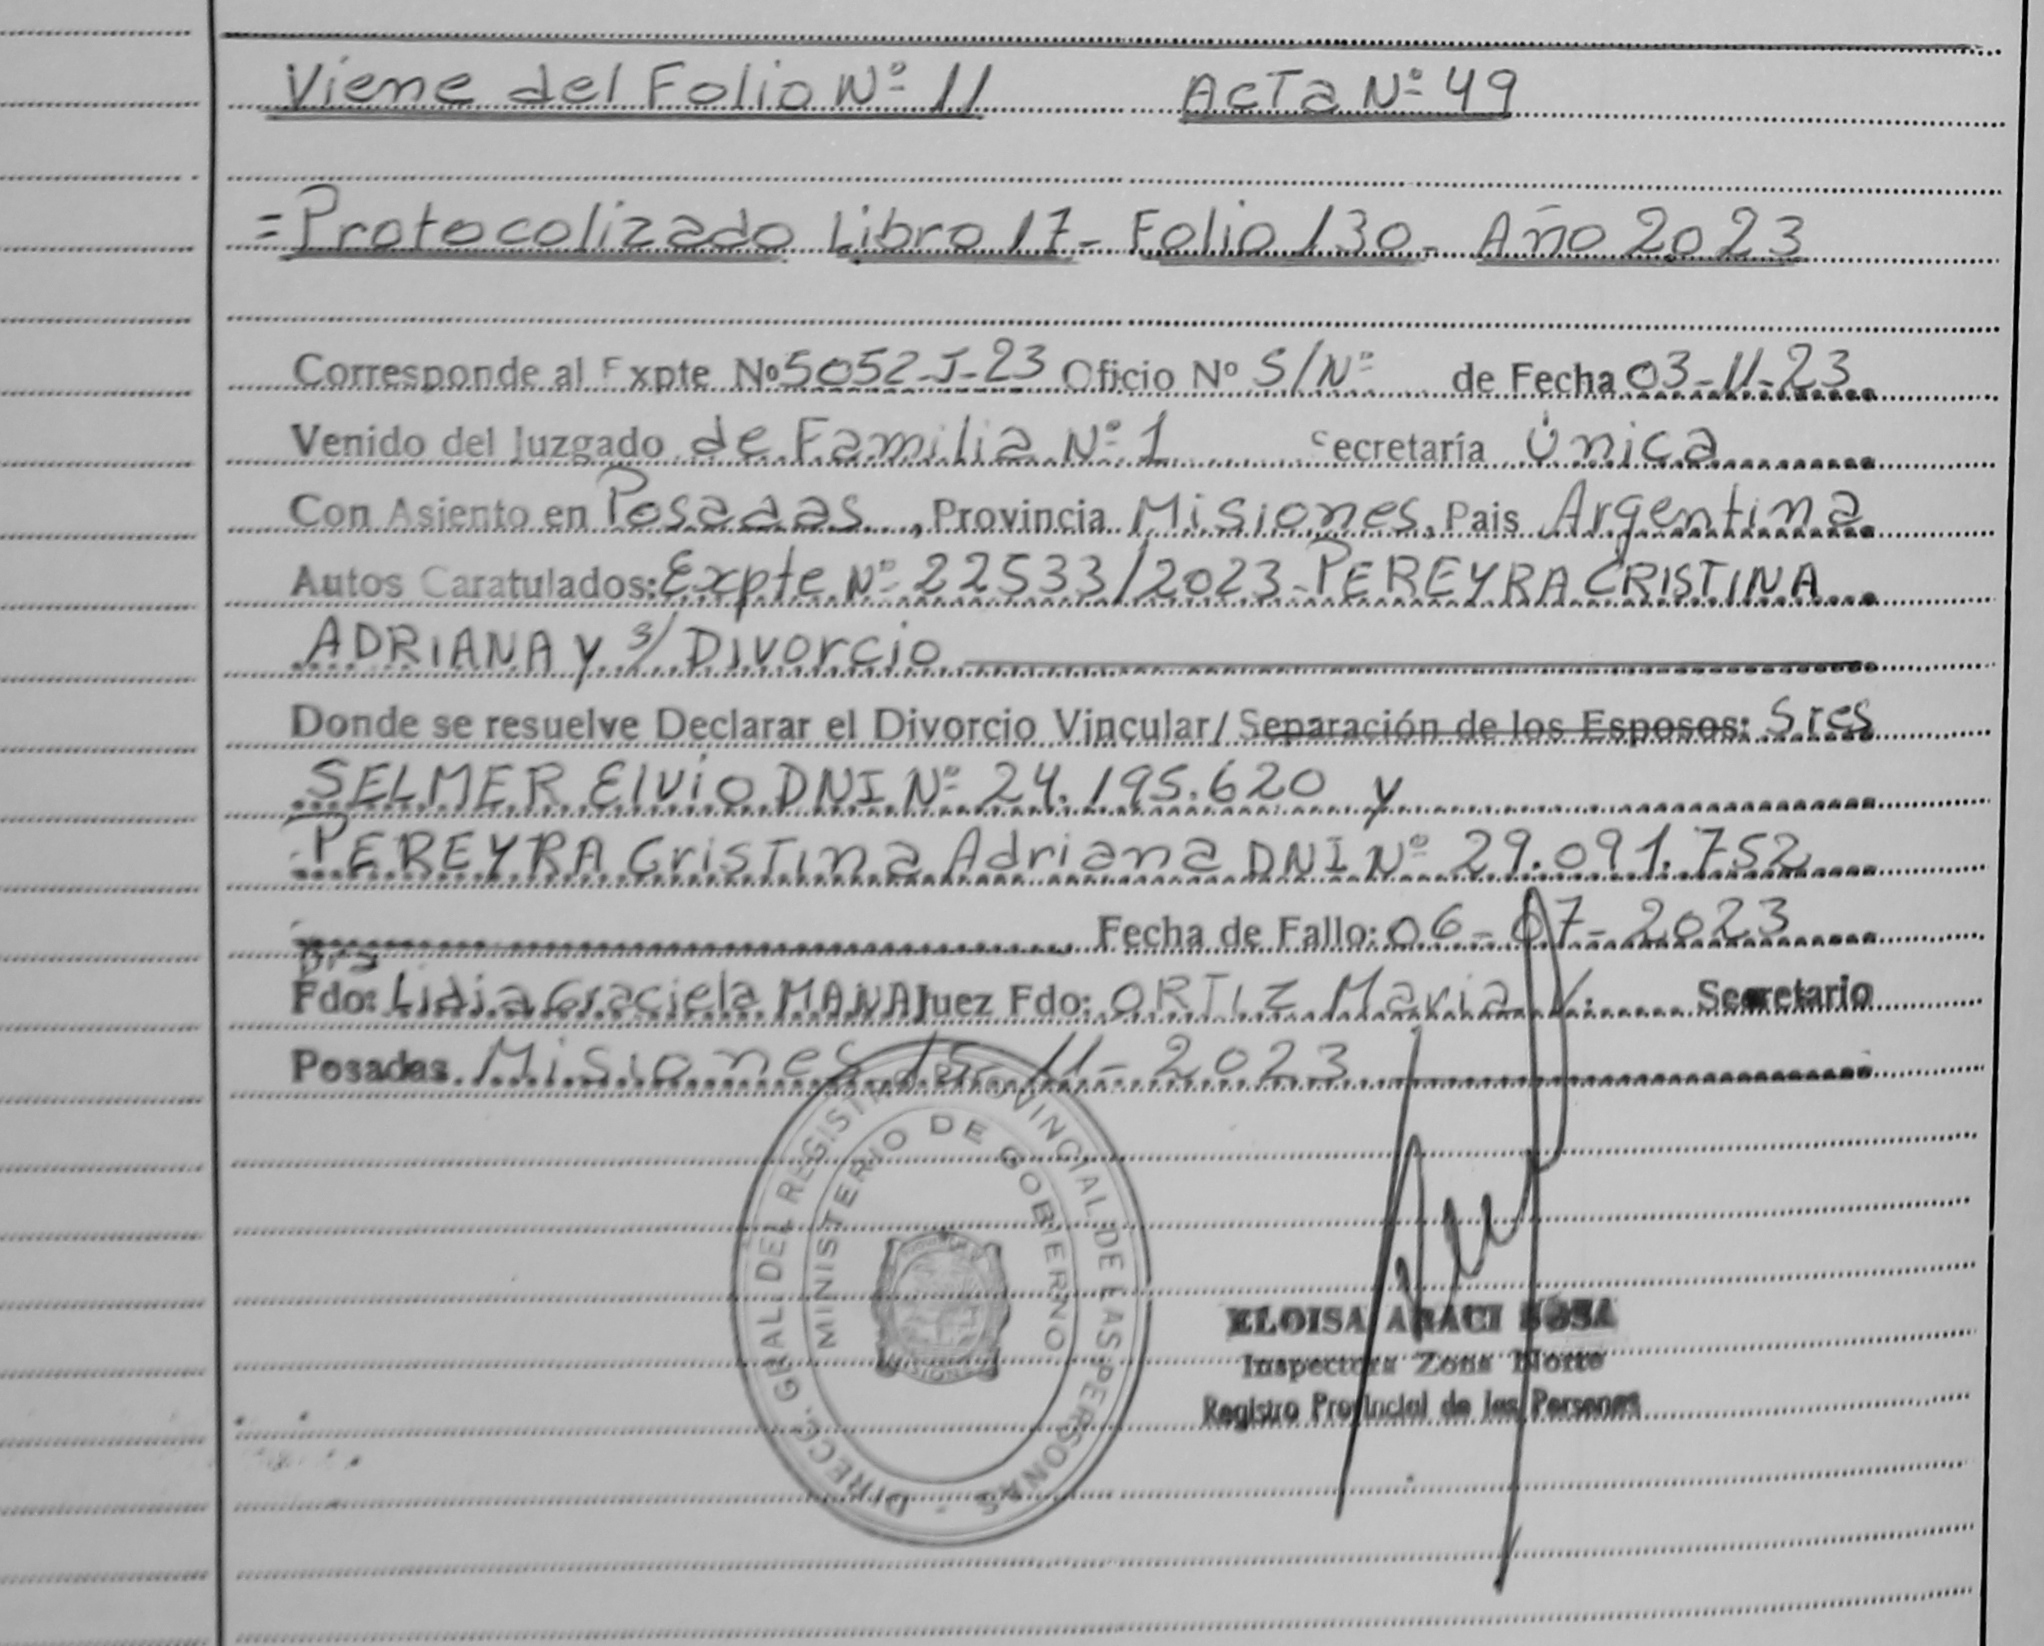 Viene del Folio Nº 11 Acta Nº 49
= Protocolizado Libro 17 - Folio 130 - Año 2023
Corresponde al Expte Nº 5052-J-23 Oficio Nº S/Nº de Fecha 03-11-23
Venido del Juzgado de Familia Nº 1 Secretaría Única
Con Asiento en Posadas, Provincia Misiones, Pais Argentina
Autos Caratulados: Expte Nº 22533/2023 - PEREYRA CRISTINA
ADRIANA y s/ Divorcio
Donde se resuelve Declarar el Divorcio Vincular/ Separación de los Esposos: Sres
SELMER Elvio DNI Nº 24.195.620 y
PEREYRA Cristina Adriana DNI Nº 29.091.752
Fecha de Fallo: 06-07-2023
Dra
Fdo: Lidia Graciela MANA Juez Fdo: ORTIZ Maria V. Secretario
Posadas Misiones 15-11-2023
DIRECC. GRAL. DEL REGISTRO PROVINCIAL DE LAS PERSONAS -
MINISTERIO DE GOBIERNO
MISIONES
ELOISA ARACI SOSA
Inspectora Zona Norte
Registro Provincial de las Personas